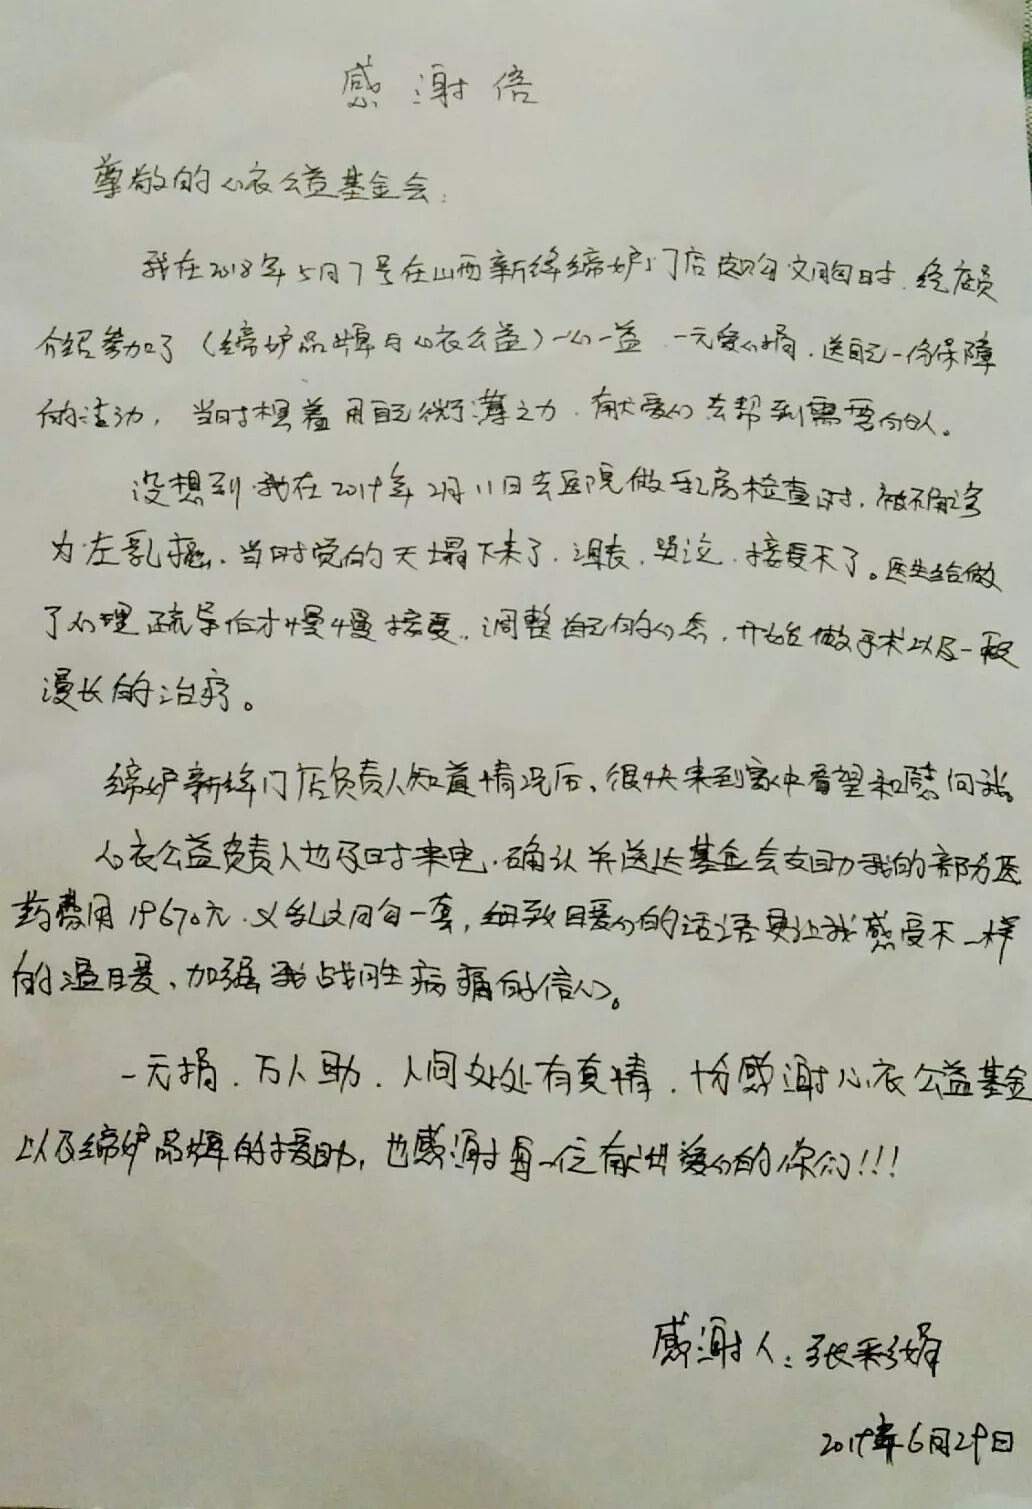 感谢信
尊敬的心衣公益基金会:
我在2018年5月7号在山西新绛缔妒门店选购文胸时.经店员
介绍参加了(缔妒品牌与心衣公益)一心一益.一元爱心捐.送自己一份保障
的活动,当时想着用自己微薄之力.献爱心去帮到需要的人。
没想到.我在2019年2月11日去医院做乳房检查时.被确诊
为左乳癌.当时觉的天塌下来了.沮丧.哭泣.接受不了。医生给做
了心理疏导后才慢慢接受.调整自己的心态.开始做手术以及一段
漫长的治疗。
缔妒新绛门店负责人知道情况后.很快来到家中看望和慰问我。
心衣公益负责人也及时来电.确认并送达基金会支助我的部分医
药费用19670元.义乳文胸一套,细致暖心的话语更让我感受不一样
的温暖.加强我战胜病痛的信心。
一元捐.万人助.人间处处有真情.十分感谢心衣公益基金
以及缔妒品牌的援助,也感谢每一位献出爱心的你们!!!
感谢人:张彩娟
2019年6月29日